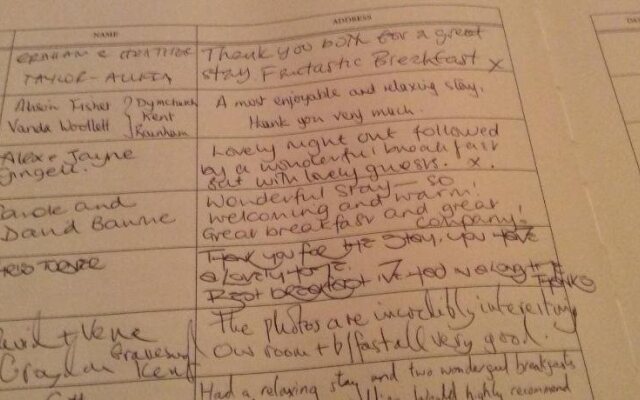 NAME
ADDRESS
TAYLOR-
Thank you both for a great
stay Fantastic Breakfast x
Alison Fisher
Vanda Woollett
Dymchurch
Kent
Rainham
A most enjoyable and relaxing stay.
Thank you very much.
Alex + Jayne
Lovely night out followed
by a wonderful breakfast
sat with lovely guests. x.
Carole and
David
Wonderful stay — so
welcoming and warm!
Great breakfast and great
company!
Thank you for the stay, you have
a lovely
Best breakfast I've had in a long
Thanks
Gravesend
Kent
The photos are incredibly interesting
Our room + b/fast all very good.
Had a relaxing stay and two wonderful breakfasts
Would highly recommend